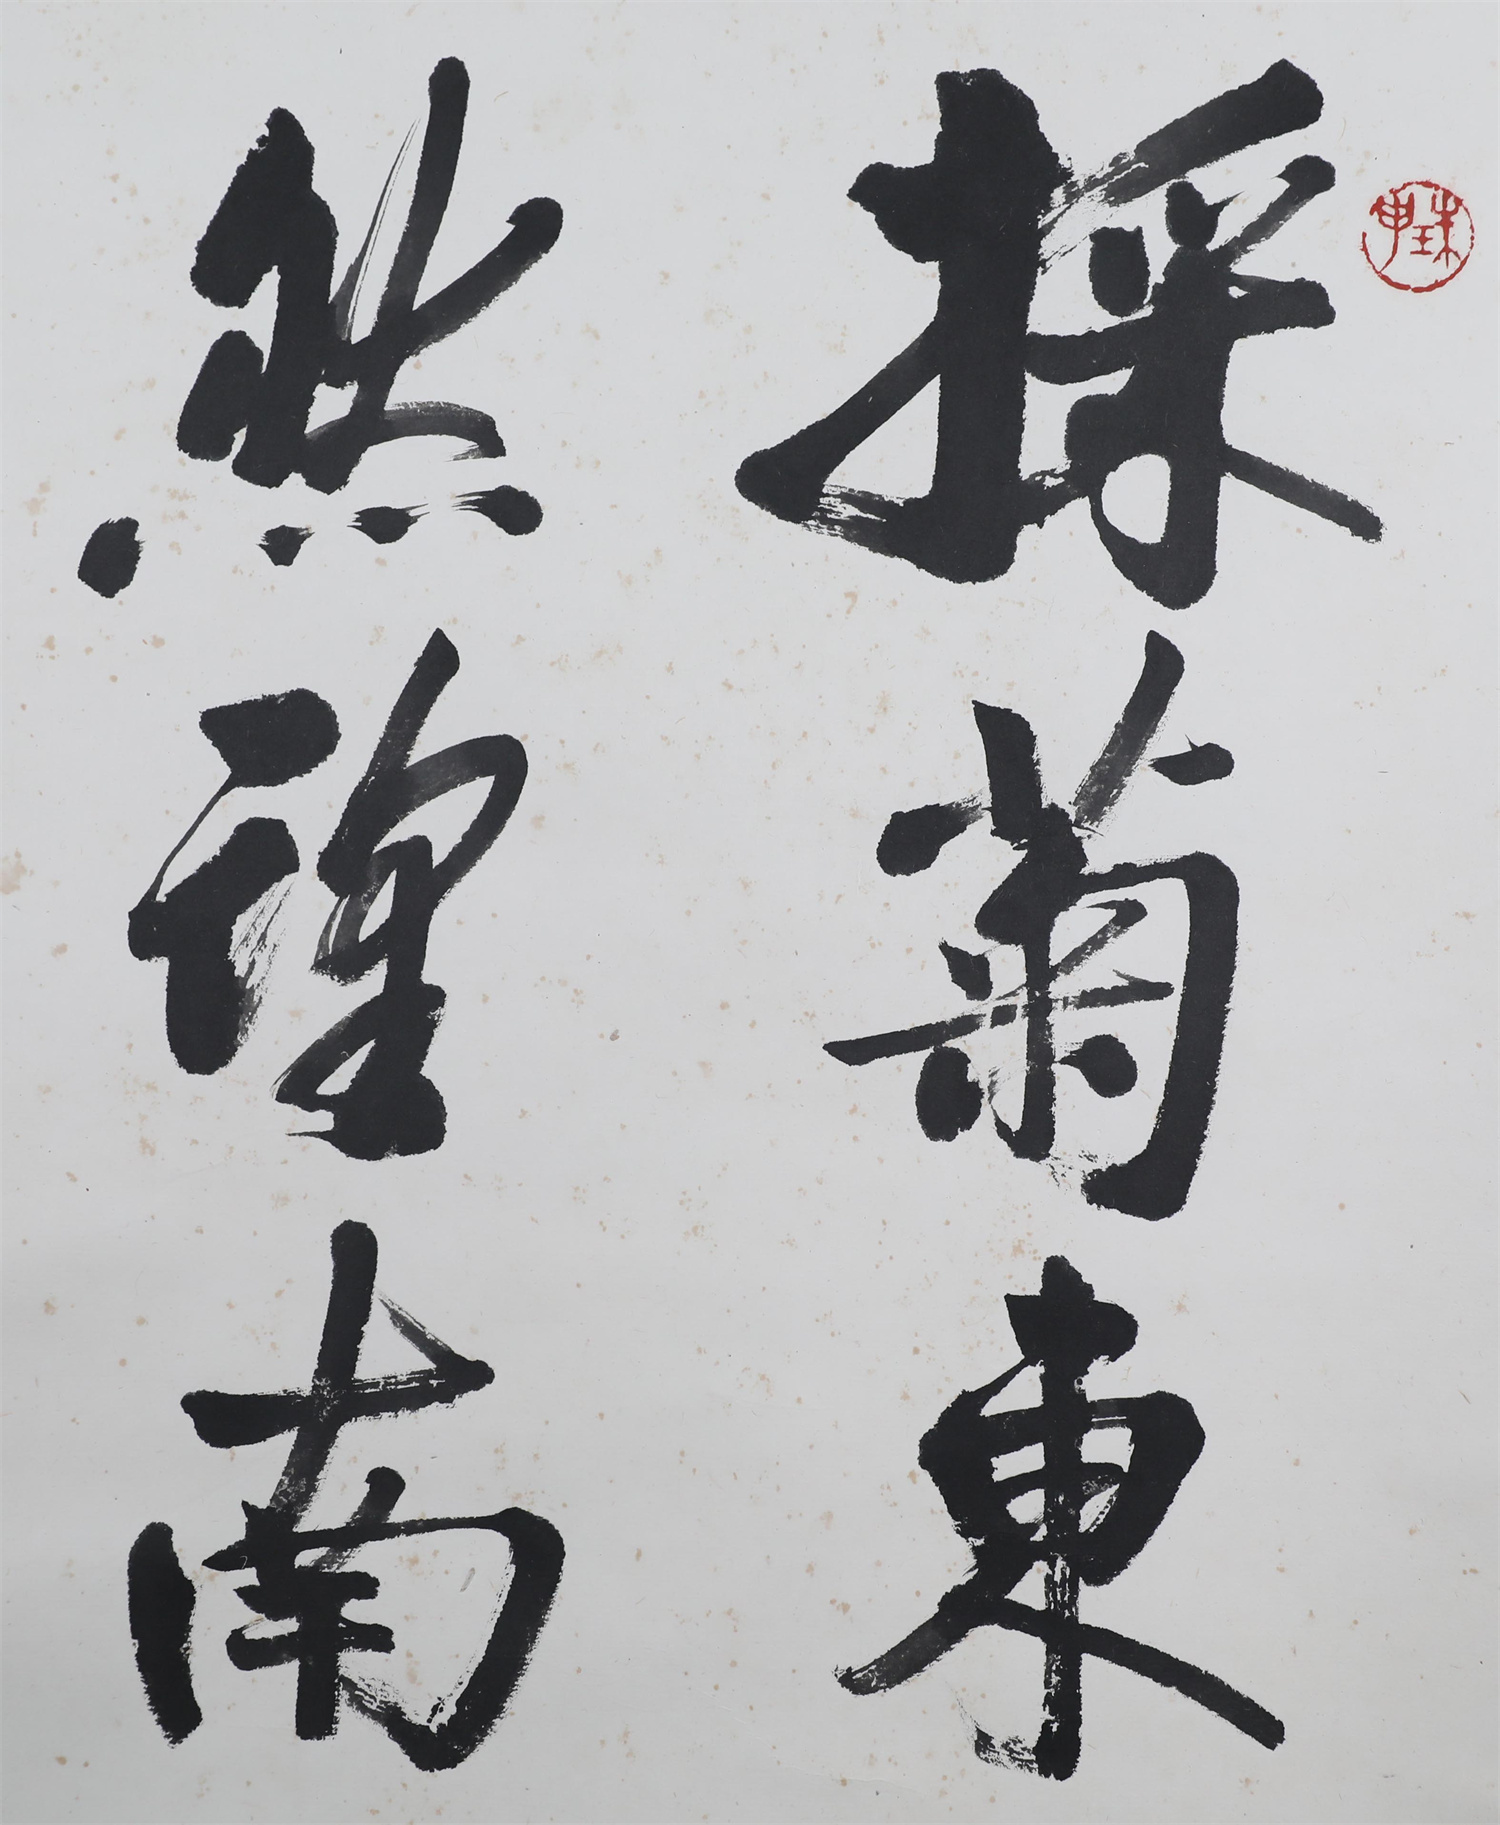 採菊東
然望南